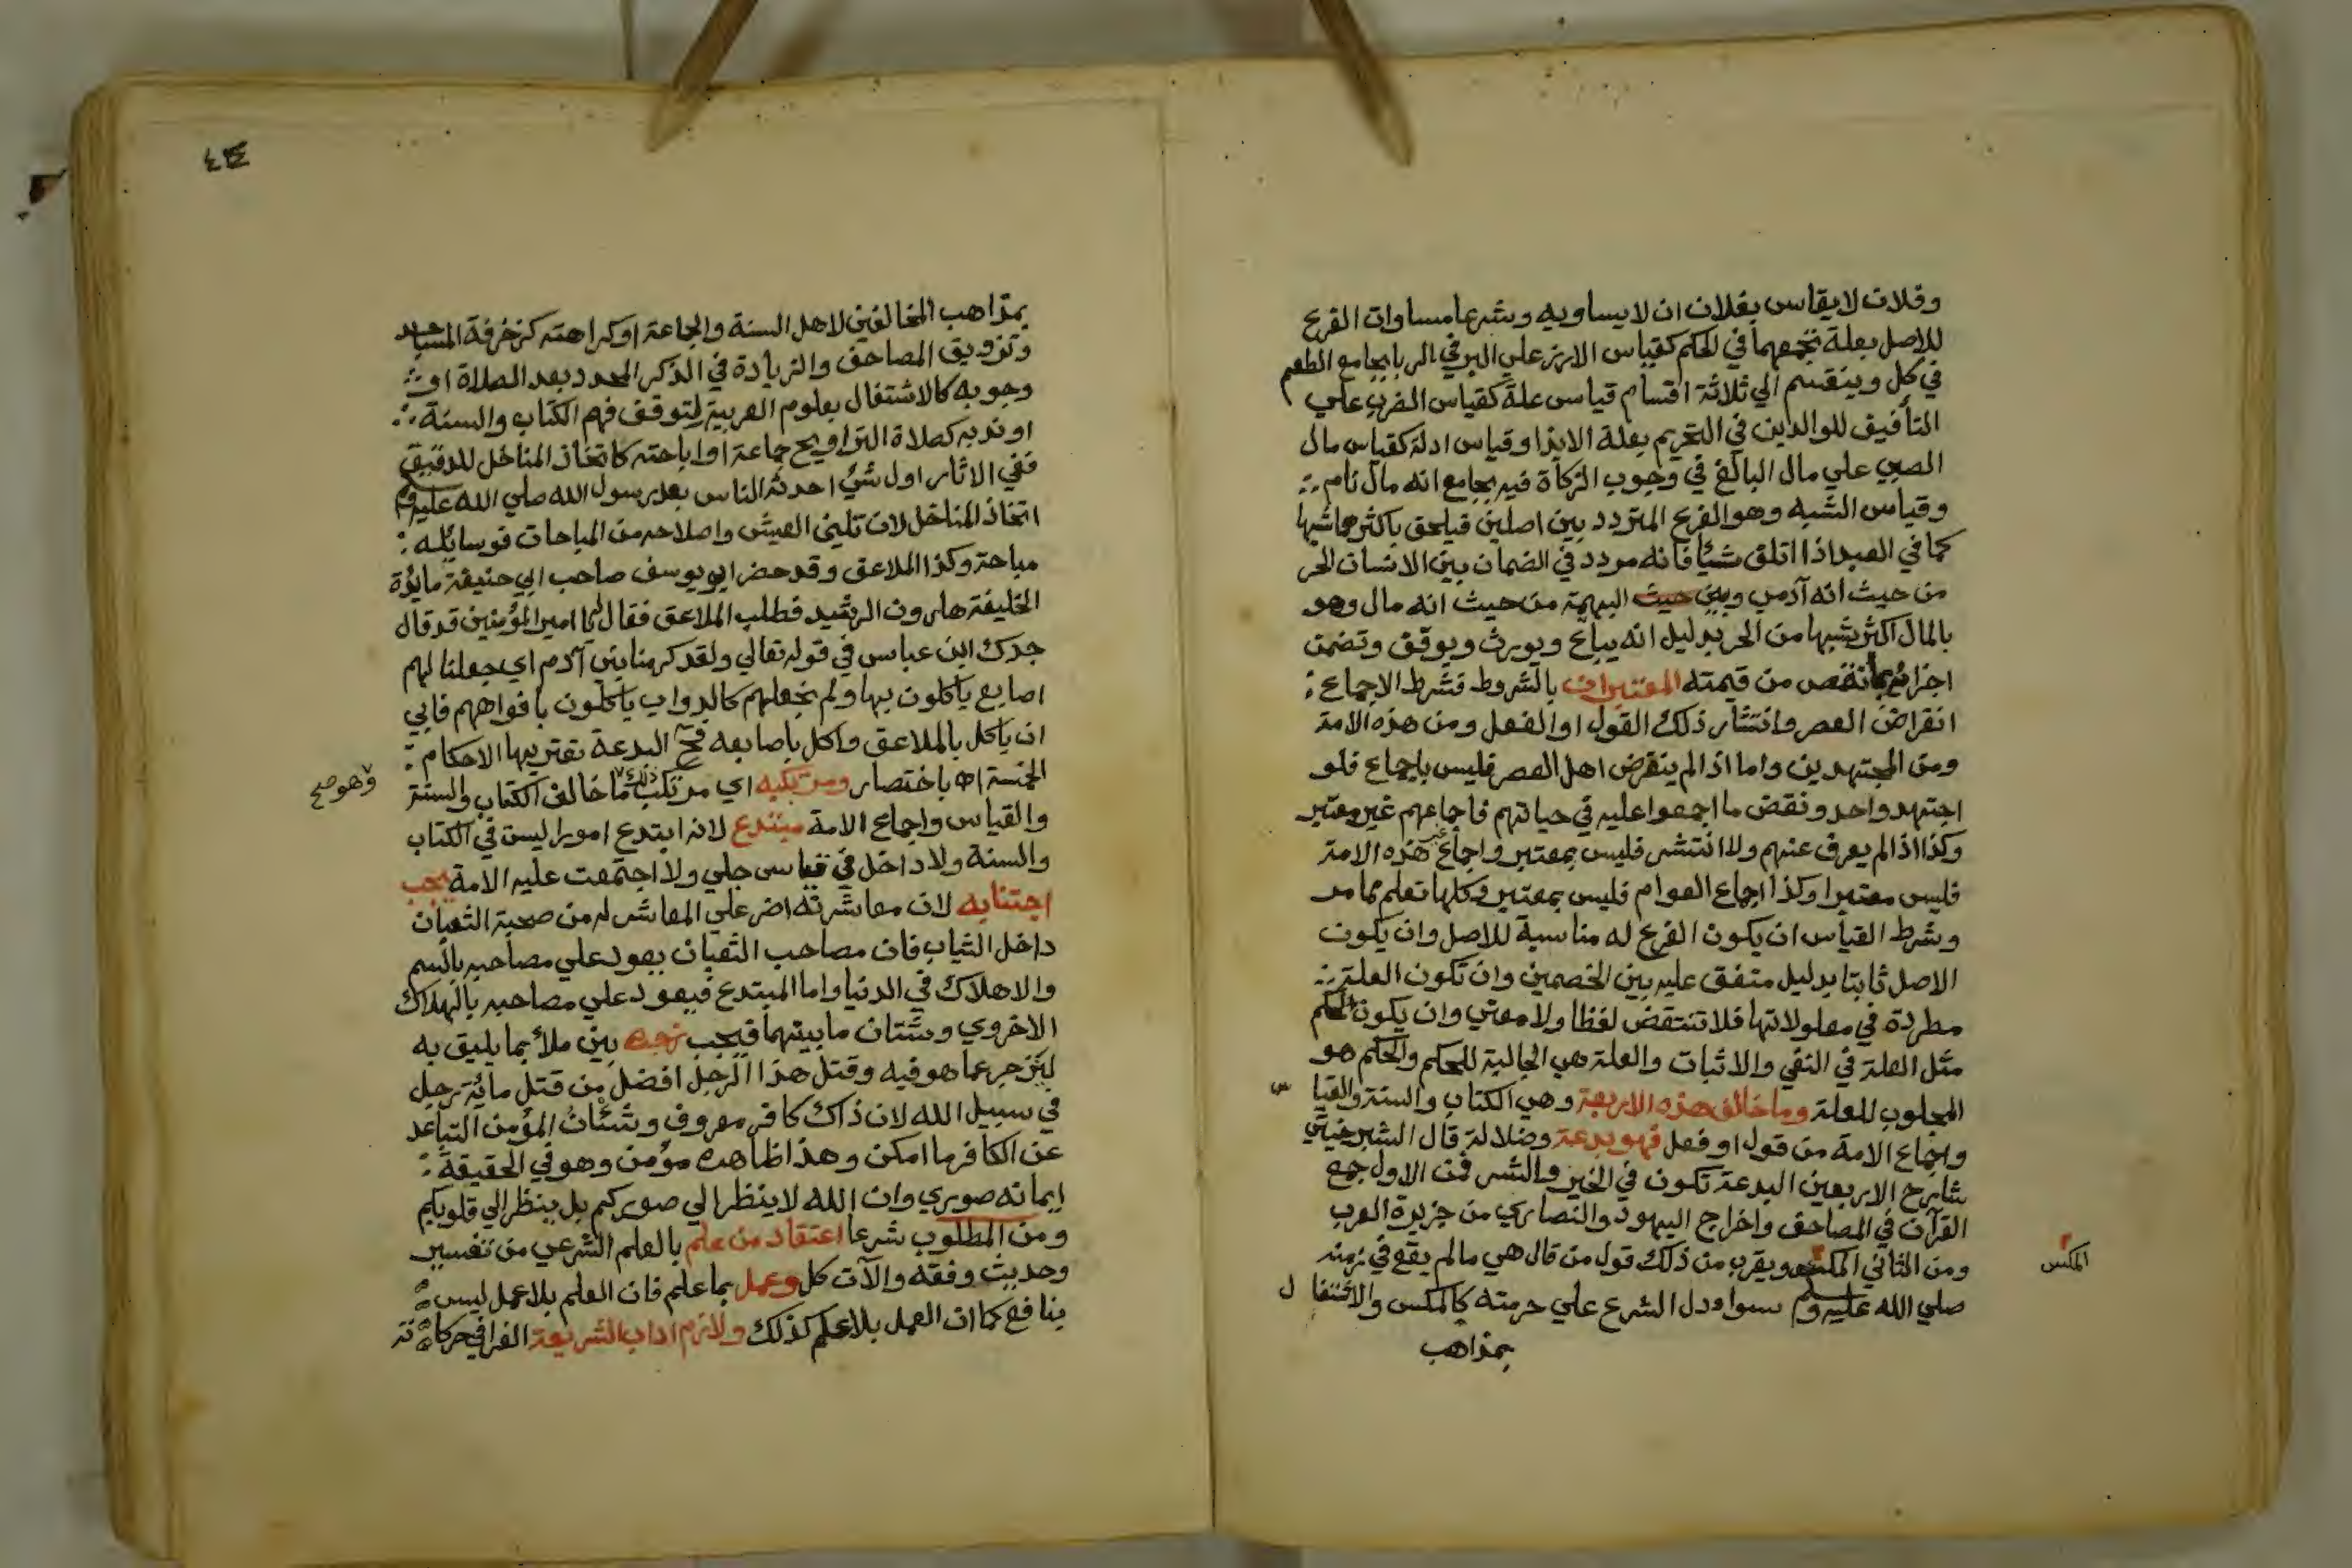 وفلان لا يقاس بفلان ان لا يساويه وشرعا مساوات الفرع
للاصل بعلة تجمعهما في الحكم كقياس الارز علي البر في الربا بجامع الطعم
في كل وينقسم الي ثلاثة اقسام قياس علة كقياس الضرب علي
التأفيف للوالدين في التحريم بعلة الايذا وقياس ادلة كقياس مال
الصبي علي مال البالغ في وجوب الزكاة فيه بجامع انه مال نام
وقياس الشبه وهو الفرع المتردد بين اصلين فيلحق باكثرهما شبها
كما في العبد اذا اتلف شيأ فانه مردد في الضمان بين الانسان الحر
من حيث انه آدمي وبين حيث البهيمة من حيث انه مال وهو
بالمال اكثر شبها من الحر بدليل انه يباع ويورث ويوقف وتضمن
اجزاؤه بما نقص من قيمته المعتبران بالشروط فشرط الاجماع
انقراض العصر وانتشار ذلك القول او الفعل ومن هذه الامة
ومن المجتهدين واما اذا لم ينقرض اهل العصر فليس باجماع فلو
اجتهد واحد ونقض ما اجمعوا عليه في حياتهم فاجماعهم غير معتبر
وكذا اذا لم يعرف عنهم ولا انتشر فليس بمعتبر واجماع غير هذه الامة
فليس معتبرا وكذا اجماع العوام فليس بمعتبر وكلها تعلم مما مر
وشرط القياس ان يكون الفرع له مناسبة للاصل وان يكون
الاصل ثابتا بدليل متفق عليه بين الخصمين وان تكون العلة
مطردة في معلولاتها فلا تنتقض لفظا ولا معني وان يكون الحكم
مثل العلة في النفي والاثبات والعلة هي الجالبة للحكم والحكم هو
المجلوب للعلة وما خالف هذه الاربعة وهي الكتاب والسنة والقياس
واجماع الامة من قول او فعل فهو بدعة وضلالة قال الشبرخيتي
شارح الاربعين البدعة تكون في الخير والشر فمن الاول جمع
القرآن في المصاحف واخراج اليهود والنصاري من جزيرة العرب
ومن الثاني المكس ويقرب من ذلك قول من قال هي ما لم يقع في زمنه
المكس
صلي الله عليه وسلم سوا ودل الشرع علي حرمته كالمكس والاشتغال
بمذاهب
٤٣٤
بمذاهب المخالفين لاهل السنة والجماعة او كراهته كزخرفة المساجد
وتزويق المصاحف والزيادة في الذكر المحدد بعد الصلاة او
وجوبه كالاشتغال بعلوم العربية لتوقف فهم الكتاب والسنة
او ندبه كصلاة التراويح جماعة او اباحته كاتخاذ المناخل للدقيق
ففي الاثار اول شيء احدثه الناس بعد رسول الله صلي الله عليه وسلم
اتخاذ المناخل لان تليين العيش واصلاحه من المباحات فوسائله
مباحة وكذا الملاعق وقد حضر ابو يوسف صاحب ابي حنيفة مائدة
الخليفة هارون الرشيد فطلب الملاعق فقال له يا امير المؤمنين قد قال
جدك ابن عباس في قوله تعالي ولقد كرمنا بني آدم اي جعلنا لهم
اصابع ياكلون بها ولم نجعلهم كالدواب ياكلون بافواههم فابي
ان ياكل بالملاعق واكل باصابعه فح البدعة تعتريها الاحكام
الخمسة اه باختصار ومرتكبه اي مرتكب ذلك ما خالف الكتاب والسنة
وهو صح
والقياس واجماع الامة مبتدع لانه ابتدع امورا ليست في الكتاب
والسنة ولا داخل في قياس جلي ولا اجتمعت عليه الامة يجب
اجتنابه لان معاشرته اضر علي المعاشر له من صحبة الثعبان
داخل الثياب فان مصاحب الثعبان يعود علي مصاحبه بالسم
والاهلاك في الدنيا واما المبتدع فيعود علي مصاحبه بالهلاك
الاخروي وشتان ما بينهما فيجب زجره بين ملأ بما يليق به
لينزجر عما هو فيه وقتل هذا الرجل افضل من قتل مائة رجل
في سبيل الله لان ذاك كافر معروف وشأن المؤمن التباعد
عن الكافر ما امكن وهذا ظاهره مؤمن وهو في الحقيقة
ايمانه صوري وان الله لا ينظر الي صوركم بل ينظر الي قلوبكم
ومن المطلوب شرعا اعتقاد من علم بالعلم الشرعي من تفسير
وحديث وفقه والآت كل وعمل بما علم فان العلم بلا عمل ليس
بنافع كما ان العمل بلا علم كذلك ولازم اداب الشريعة الغرا في حركاته